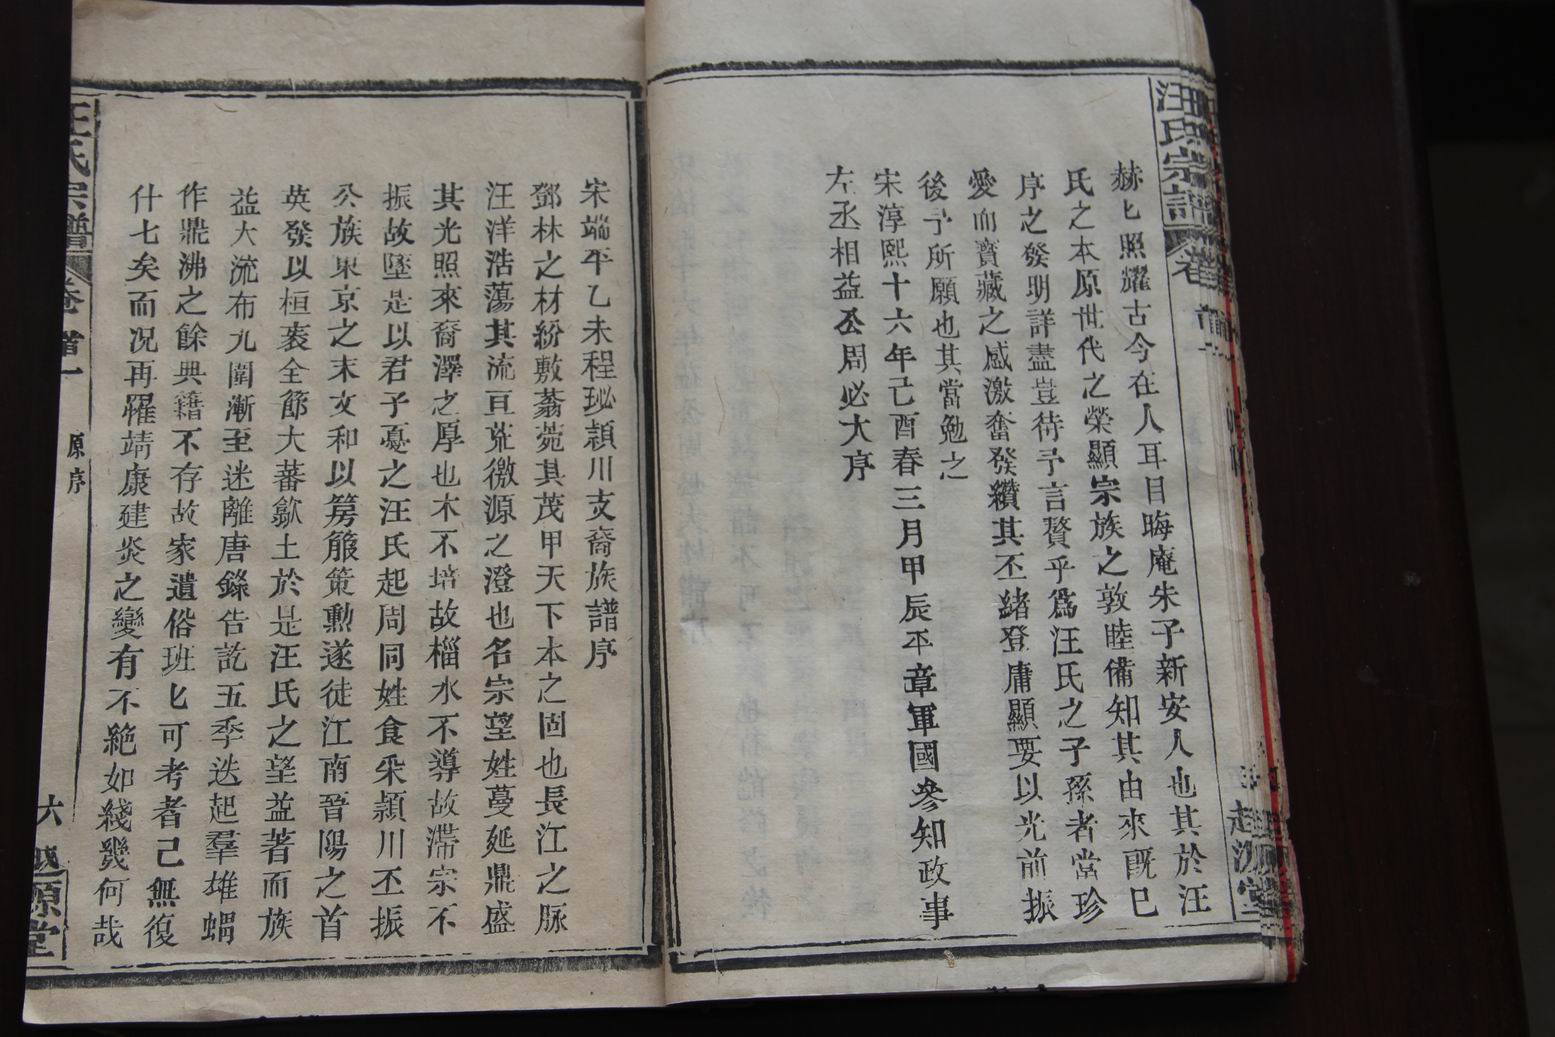 赫匕照耀古今在人耳目晦庵朱子新安人也其於汪
氏之本原世代之榮顯宗族之敦睦備知其由來既已
序之發明詳盡豈待予言贅乎爲汪氏之子孫者當珍
愛而寶藏之感激奮發纘其丕緒登庸顯要以光前振
後予所願也其當勉之
宋淳熙十六年己酉春三月甲辰平章軍國參知政事
左丞相益公周必大序
宋端平乙未程珌潁川支裔族譜序
鄧林之材紛敷蓊菀其茂甲天下本之固也長江之脉
汪洋浩蕩其流亘荒徼源之澄也名宗望姓蔓延鼎盛
其光照來裔澤之厚也木不培故檣水不導故滯宗不
振故墜是以君子憂之汪氏起周同姓食采潁川丕振
公族東京之末文和以勇服策勳遂徙江南晉陽之首
英發以桓袤全節大蕃歙土於是汪氏之望益著而族
益大流布九圍漸至迷離唐籙告訖五季迭起羣雄蝟
作鼎沸之餘典籍不存故家遺俗班匕可考者己無復
什七矣而況再罹靖康建炎之變有不絶如綫幾何哉
汪氏宗譜 卷首一 原序 六 越源堂